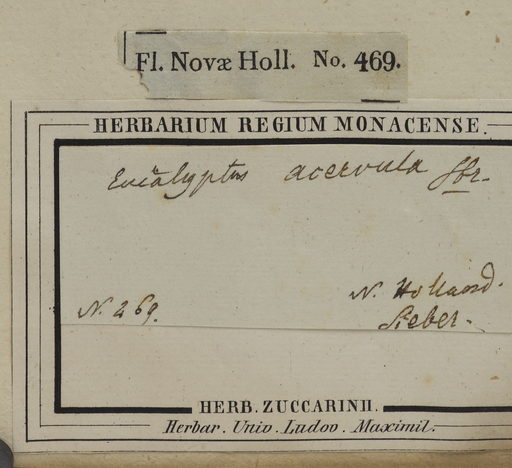 Fl. Novæ Holl. No. 469.
HERBARIUM REGIUM MONACENSE.
Eucalyptus acervula Sbr.
N. Holland.
N. 269. Sieber.
HERB. ZUCCARINII.
Herbar. Univ. Ludov. Maximil.